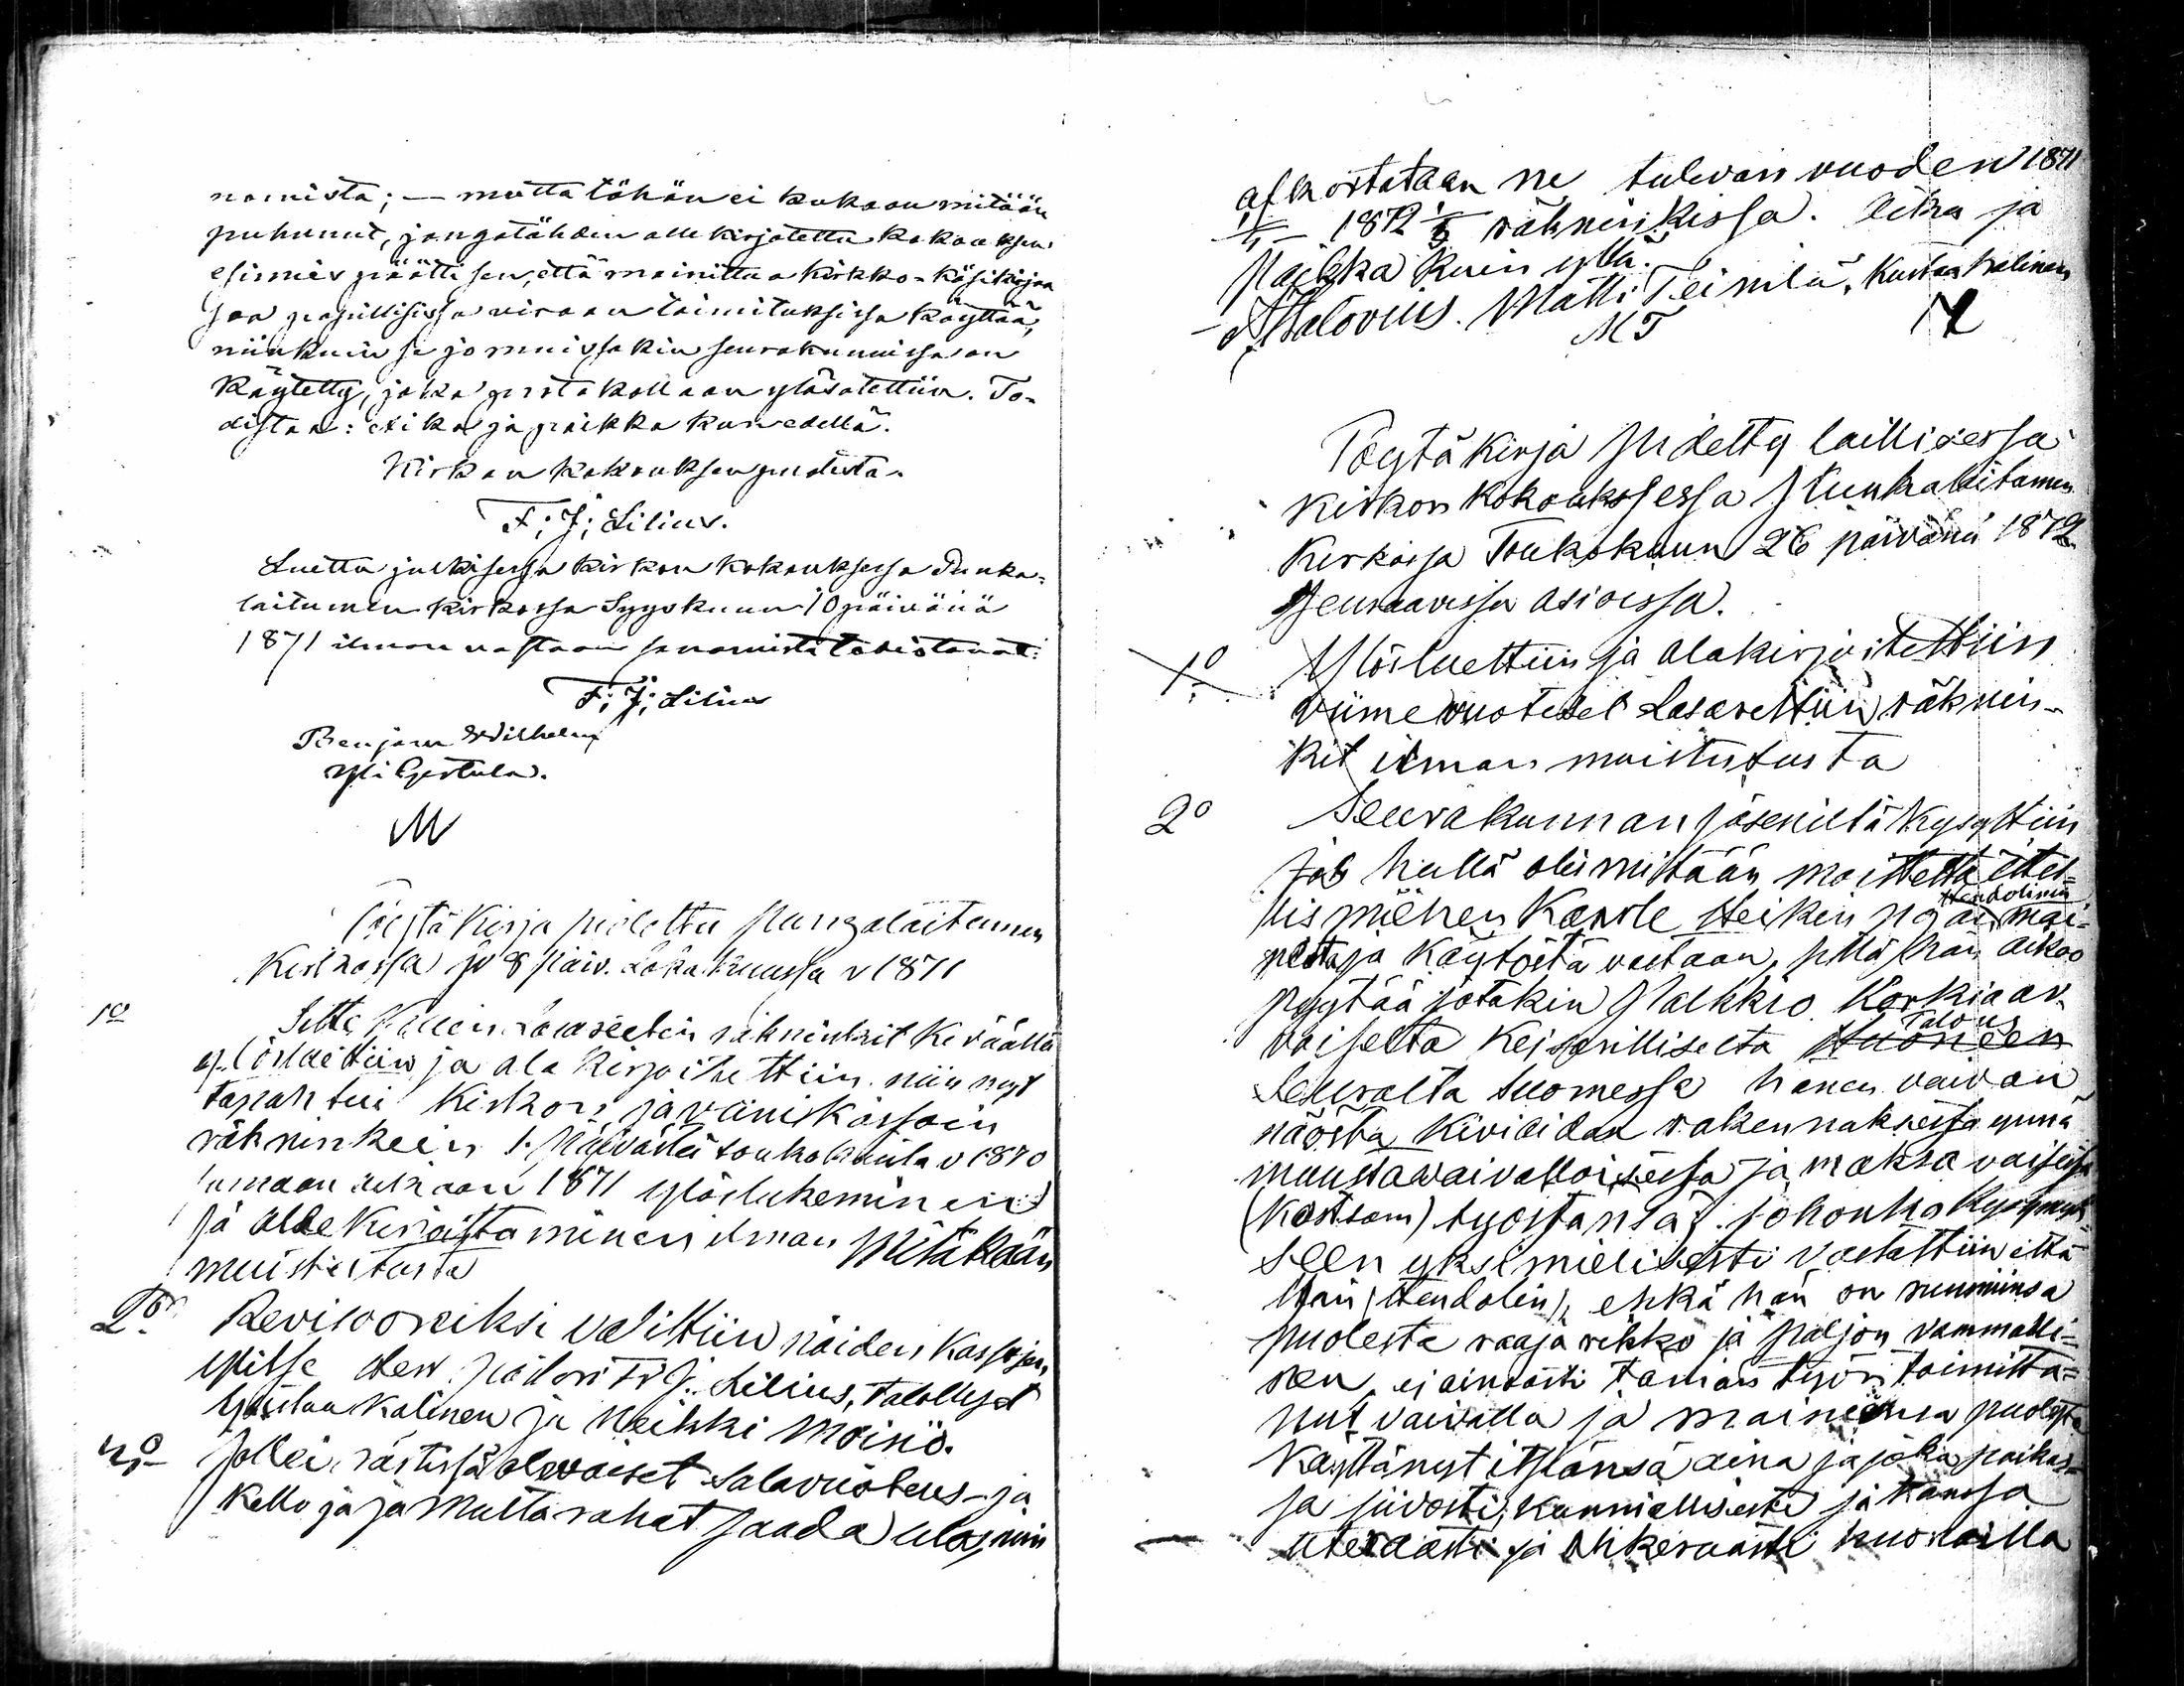 nomista; — mutta tähän ei kukaan mitään
puhunut, jongatähden allekirjotettu kokouksen
esimies päätti sen, että mainittua kirkko-käsikirjaa
saa papillisissa viraan toimituksissa käyttää,
niinkuin se jo muissakin seurakunnissa on
käytetty, joka protokollaan ylösotettiin. To-
distaa: Aika ja paikka kuin edellä.
Kirkon kokouksen puolesta.
F; J; Lilius.
Luettu julkisessa kirkon kokouksessa Punka-
laitumen kirkossa Syyskuun 10 päivänä
1871 ilman vastaan sanomista todistavat:
F; J; Lilius
Benjam Wilhelm
Yli Gertula.
Töytä Kirja pidettu Pungalaitumen
Kirkossa se 8 päiv. Loka kuussa v 1871
1o
Sitte Kuin Lasaretin räkninkit Keväällä
ylösluettiin ja ala kirjoitettiin niin nyt
tapahtui Kirkon ja vaiviskassain
räkninkein 1. päivästä toukokuuta v 1870
samaan aikaan 1871 ylöslukeminen
ja alle Kirjoittaminen ilman Mitäkään
muistutusta
2o
Revisooreiksi valittiin näiden Kassojen
ylitse Herr pastori F. J. Lilius, talolliset
Kustaa Kalinen ja Heikki Moinö.
3o
Jollei rästissä olevaiset Salavuoteus- ja
Kello ja ja Multa rahat saada ulos, niin
afkortataan ne tulevan vuoden 1871
1/5 — 1872 1/5 räkninkissa. Aika ja
Paikka kuin yllä.
Salovius. Matti Teinilä. Kustaa Kalinen
MT
Töytäkirja Pidetty laillisessa
Kirkon kokouksessa Punkalaitumen
Kirkossa Toukokuun 26 päivänä 1872
Seuraavissa asioissa.
1o
Ylösluettiin ja alakirjoitettiin
viimevuotiset Lasarettiin räknin-
kit ilman muistutusta
2o
Seurakunnan jäseniltä Kysyttiin
jos heillä olis mittään moittetta ittel-
Hendolinin
lismiehen Kaarle Heikin pojan mai-
netta ja käytöstä vastaan, sillä hän aikoo
pyytää jotakin Palkkio Korkiaar-
Talous
voiselta Keisarilliselta Huoneen
Seuralta Suomessa hänen vaivan
näöstä Kiviaidan rakennuksesta ynnä
muusta vaivalloisessa ja maksavaisessa
(Kostsam) työstänsä; johonka Kysymyk-
seen yksimielisesti vastattiin että
Hän (Hendolin), ehkä hän on ruumiinsa
puolesta raajarikko ja paljon vammalli-
nen, ei ainoasti tämän työn toimitta-
nut vaivalla ja maineensa puolesta
Käyttänyt itsiänsä aina ja joka paikas-
sa siivosti, kunniallisesti ja kanssa
uteraasti ja Ahkeraasti